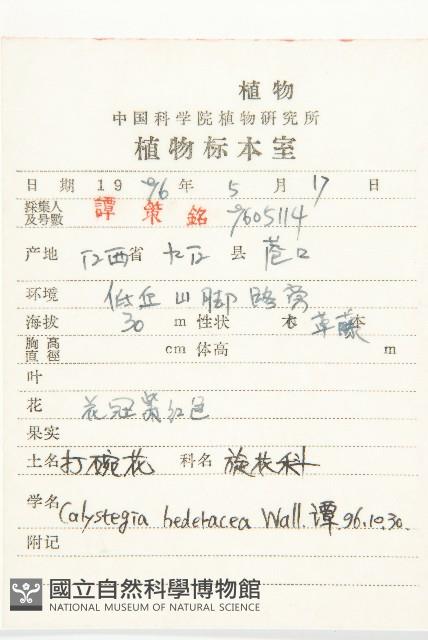 植物
中国科学院植物研究所
植物标本室
日期 1996年5月17日
採集人及号數 譚策銘 9605114
产地 江西省 九江县 港口
环境 低丘山脚路旁
海拔 30 m 性状 草藤本
胸高直徑 cm 体高 m
叶
花 花冠紫红色
果实
土名 打碗花 科名 旋花科
学名 Calystegia hederacea Wall. 譚 96.10.30.
附记
國立自然科學博物館
NATIONAL MUSEUM OF NATURAL SCIENCE